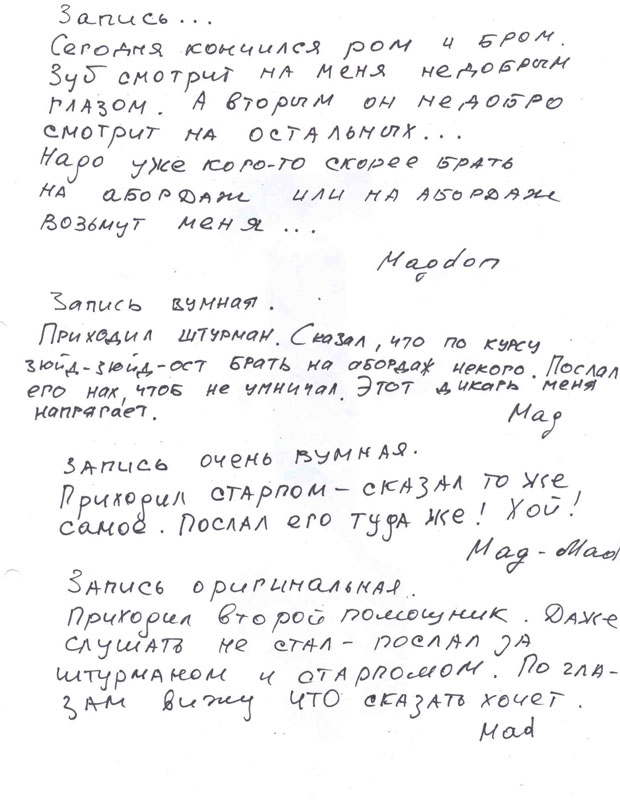 Запись...
Сегодня кончился ром и бром.
Зуб смотрит на меня недобрым
глазом. А вторым он недобро
смотрит на остальных...
Надо уже кого-то скорее брать
на абордаж или на абордаж
возьмут меня...
Magdon
Запись вумная.
Приходил штурман. Сказал, что по курсу
зюйд-зюйд-ост брать на абордаж некого. Послал
его нах, чтоб не умничал. Этот дикарь меня
напрягает.
Mag
Запись очень вумная.
Приходил старпом - сказал то же
самое. Послал его туда же! Хой!
Mag-Mad
Запись оригинальная.
Приходил второй помощник. Даже
слушать не стал - послал за
штурманом и старпомом. По гла-
зам вижу что сказать хочет.
Mad